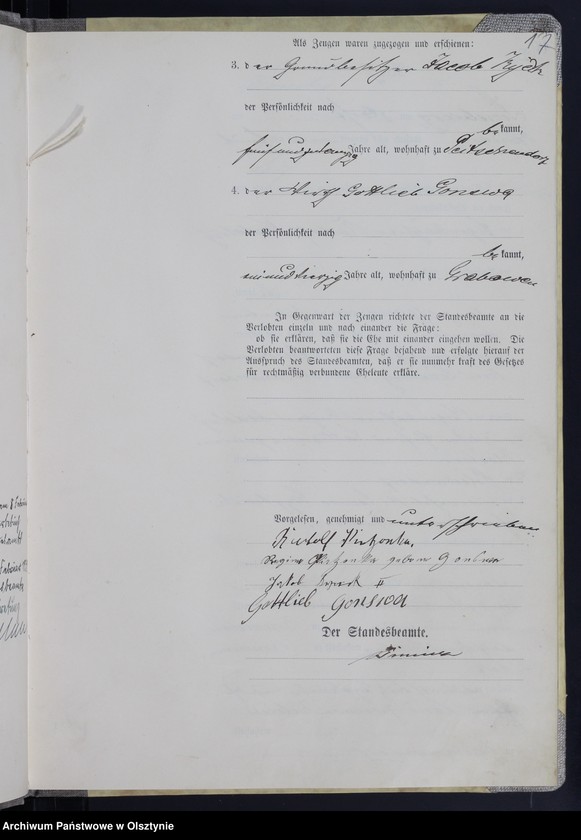 17
Als Zeugen waren zugezogen und erschienen:
3. der Grundbesitzer Jacob
der Persönlichkeit nach
be kannt,
fünfundzwanzig Jahre alt, wohnhaft zu Peitschendorf
4. der Wirth Gottlieb Gonswa
der Persönlichkeit nach
be kannt,
einundvierzig Jahre alt, wohnhaft zu Grabowen
In Gegenwart der Zeugen richtete der Standesbeamte an die
Verlobten einzeln und nach einander die Frage:
ob sie erklären, daß sie die Ehe mit einander eingehen wollen. Die
Verlobten beantworteten diese Frage bejahend und erfolgte hierauf der
Ausspruch des Standesbeamten, daß er sie nunmehr kraft des Gesetzes
für rechtmäßig verbundene Eheleute erkläre.
Vorgelesen, genehmigt und unterschrieben.
Rudolf
Regine geborn
Jakob II
Gottlieb Gonswa
Der Standesbeamte.
Archiwum Państwowe w Olsztynie